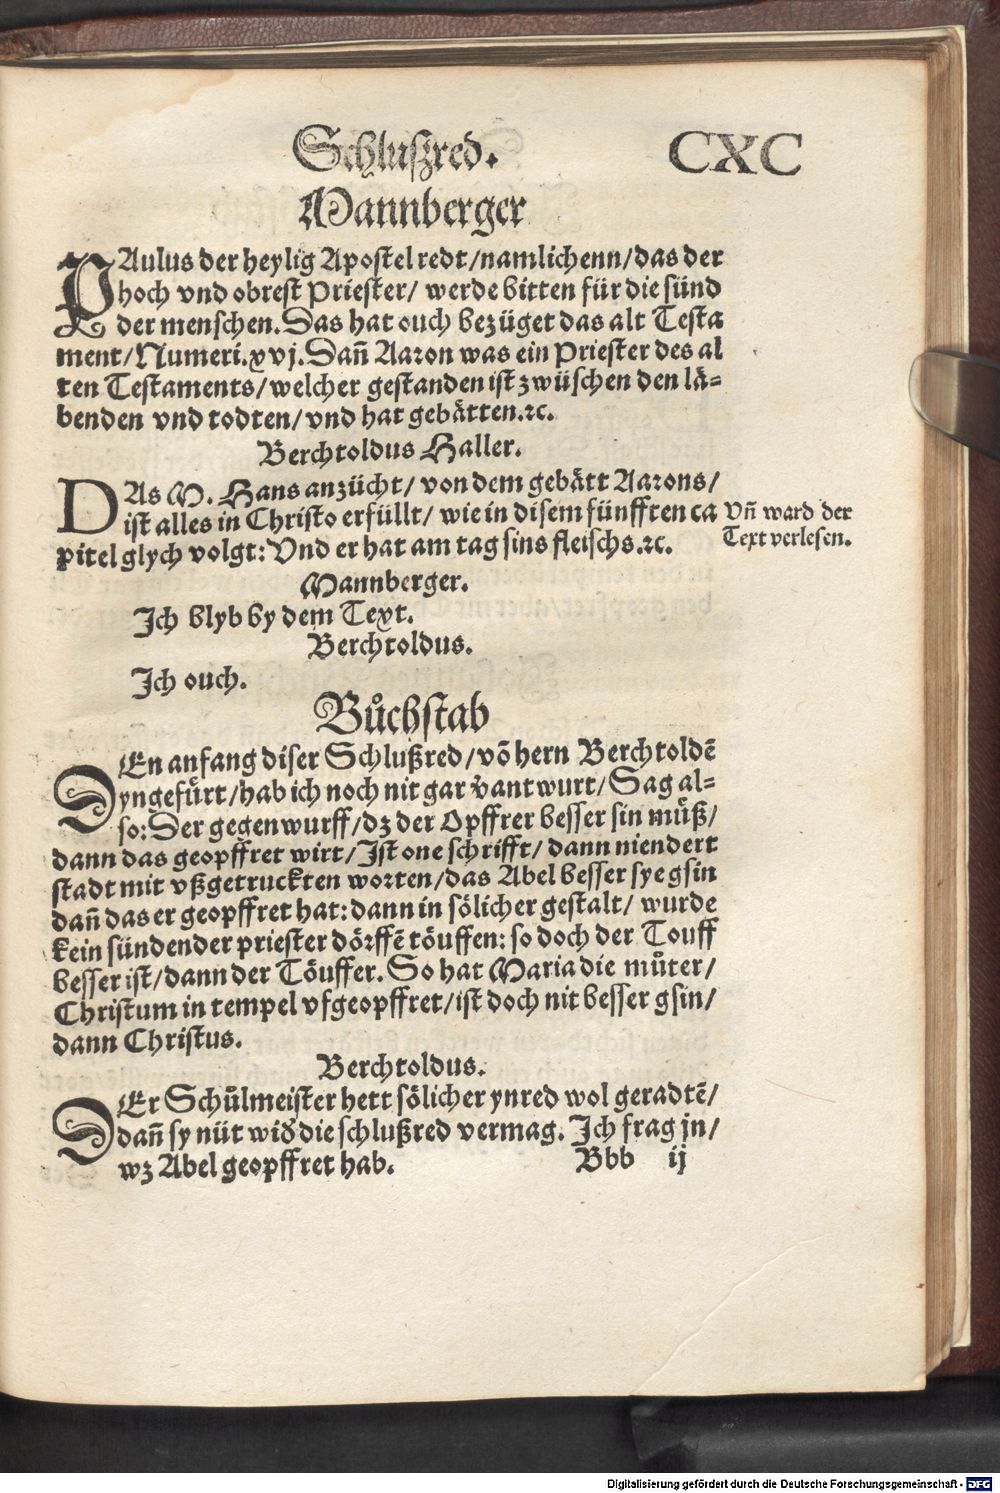 Schlußred. CXC
Mannberger
PAulus der heylig Apostel redt/namlichenn/das der
hoch vnd obrest Priester/ werde bitten für die sünd
der menschen. Das hat ouch bezüget das alt Testa
ment/Numeri.xvj. Dañ Aaron was ein Priester des al
ten Testaments/welcher gestanden ist zwüschen den lä⸗
benden vnd todten/vnd hat gebätten.ꝛc.
Berchtoldus Haller.
DAs M. Hans anzücht/ von dem gebätt Aarons/
ist alles in Christo erfüllt/ wie in disem fünfften ca
pitel glych volgt: Vnd er hat am tag sins fleischs.ꝛc.
Vñ ward der
Text verlesen.
Mannberger.
Ich blyb by dem Text.
Berchtoldus.
Ich ouch.
Bůchstab
DEn anfang diser Schlußred/võ hern Berchtoldẽ
yngefürt/hab ich noch nit gar v̓antwurt/Sag al⸗
so: Der gegenwurff/dz der Opffrer besser sin můß/
dann das geopffret wirt/Ist one schrifft/ dann niendert
stadt mit vßgetruckten worten/das Abel besser sye gsin
dañ das er geopffret hat: dann in sölicher gestalt/ wurde
kein sündender priester dörffẽ töuffen: so doch der Touff
besser ist/dann der Töuffer. So hat Maria die můter/
Christum in tempel vfgeopffret/ist doch nit besser gsin/
dann Christus.
Berchtoldus.
DEr Schůlmeister hett sölicher ynred wol geradtẽ/
dañ sy nüt wid̓ die schlußred vermag. Ich frag jn/
wz Abel geopffret hab. Bbb ij
Digitalisierung gefördert durch die Deutsche Forschungsgemeinschaft - DFG